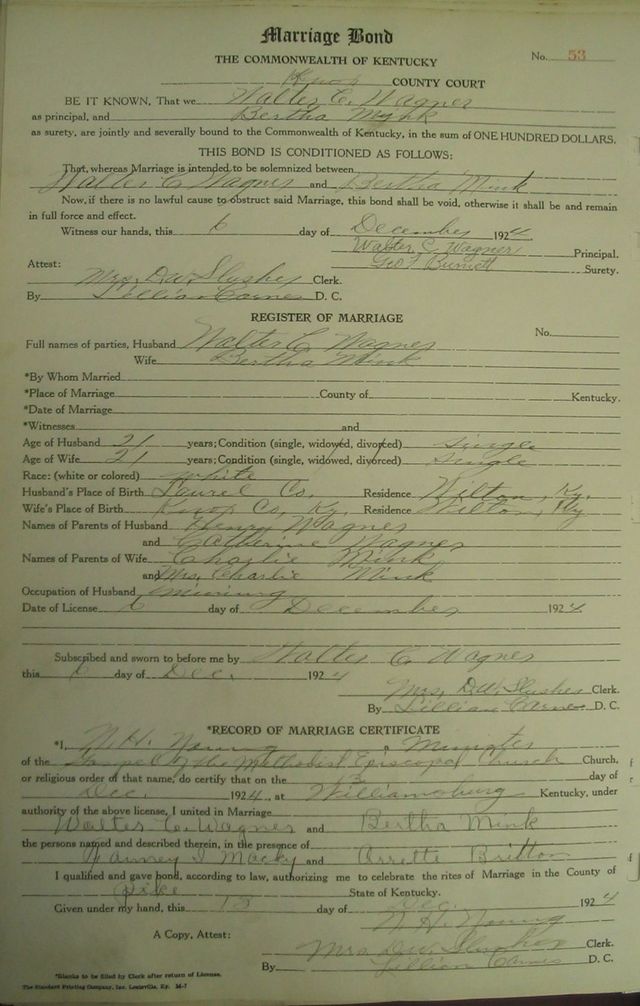 Marriage Bond
THE COMMONWEALTH OF KENTUCKY No. 53
Knox COUNTY COURT
BE IT KNOWN, That we Walter C. Wagner
as principal, and Bertha Mink
as surety, are jointly and severally bound to the Commonwealth of Kentucky, in the sum of ONE HUNDRED DOLLARS.
THIS BOND IS CONDITIONED AS FOLLOWS:
That, whereas Marriage is intended to be solemnized between
Walter C Wagner and Bertha Mink
Now, if there is no lawful cause to obstruct said Marriage, this bond shall be void, otherwise it shall be and remain
in full force and effect.
Witness our hands, this 6 day of December 1924.
Walter C. Wagner Principal.
Geo T Burnett Surety.
Attest:
Mrs. D.W. Slusher Clerk.
By Lillian Carnes D. C.
REGISTER OF MARRIAGE
No.
Full names of parties, Husband Walter C. Wagner
Wife Bertha Mink
*By Whom Married
*Place of Marriage County of Kentucky.
*Date of Marriage
*Witnesses and
Age of Husband 21 years; Condition (single, widowed, divorced) single
Age of Wife 21 years; Condition (single, widowed, divorced) single
Race: (white or colored) white
Husband's Place of Birth Laurel Co. Residence Wilton, Ky.
Wife's Place of Birth Knox Co, Ky. Residence Wilton, Ky
Names of Parents of Husband Henry Wagner
and Catherine Wagner
Names of Parents of Wife Charlie Mink
and Mrs. Charlie Mink
Occupation of Husband mining
Date of License 6 day of December 1924.
Subscribed and sworn to before me by Walter C. Wagner
this 6 day of Dec. 1924
Mrs. D.W. Slusher Clerk.
By Lillian Carnes D. C.
*RECORD OF MARRIAGE CERTIFICATE
*I, N. H. Young, Minister
of the Gospel of the Methodist Episcopal Church Church,
or religious order of that name, do certify that on the day of
Dec. 1924, at Williamsburg Kentucky, under
authority of the above license, I united in Marriage
Walter C. Wagner and Bertha Mink
the persons named and described therein, in the presence of
Macky and Arrette Britton
I qualified and gave bond, according to law, authorizing me to celebrate the rites of Marriage in the County of
Pike State of Kentucky.
Given under my hand, this 13 day of Dec. 1924
N. H. Young
A Copy, Attest:
Mrs D.W. Slusher Clerk.
By Lillian Carnes D. C.
*Blanks to be filled by Clerk after return of License.
The Standard Printing Company, Inc. Louisville, Ky. M-7